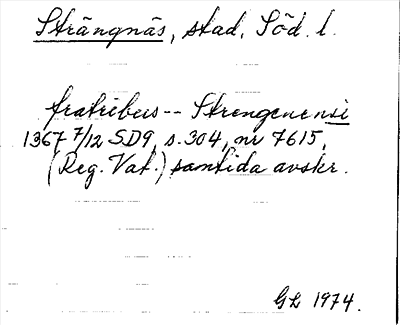 Strängnäs, stad, Söd. l.
fratribus -- Strengenensi
1367 7/12 SD9, s. 304, nr 7615,
(Reg. Vat.) samtida avskr.
GL 1974.